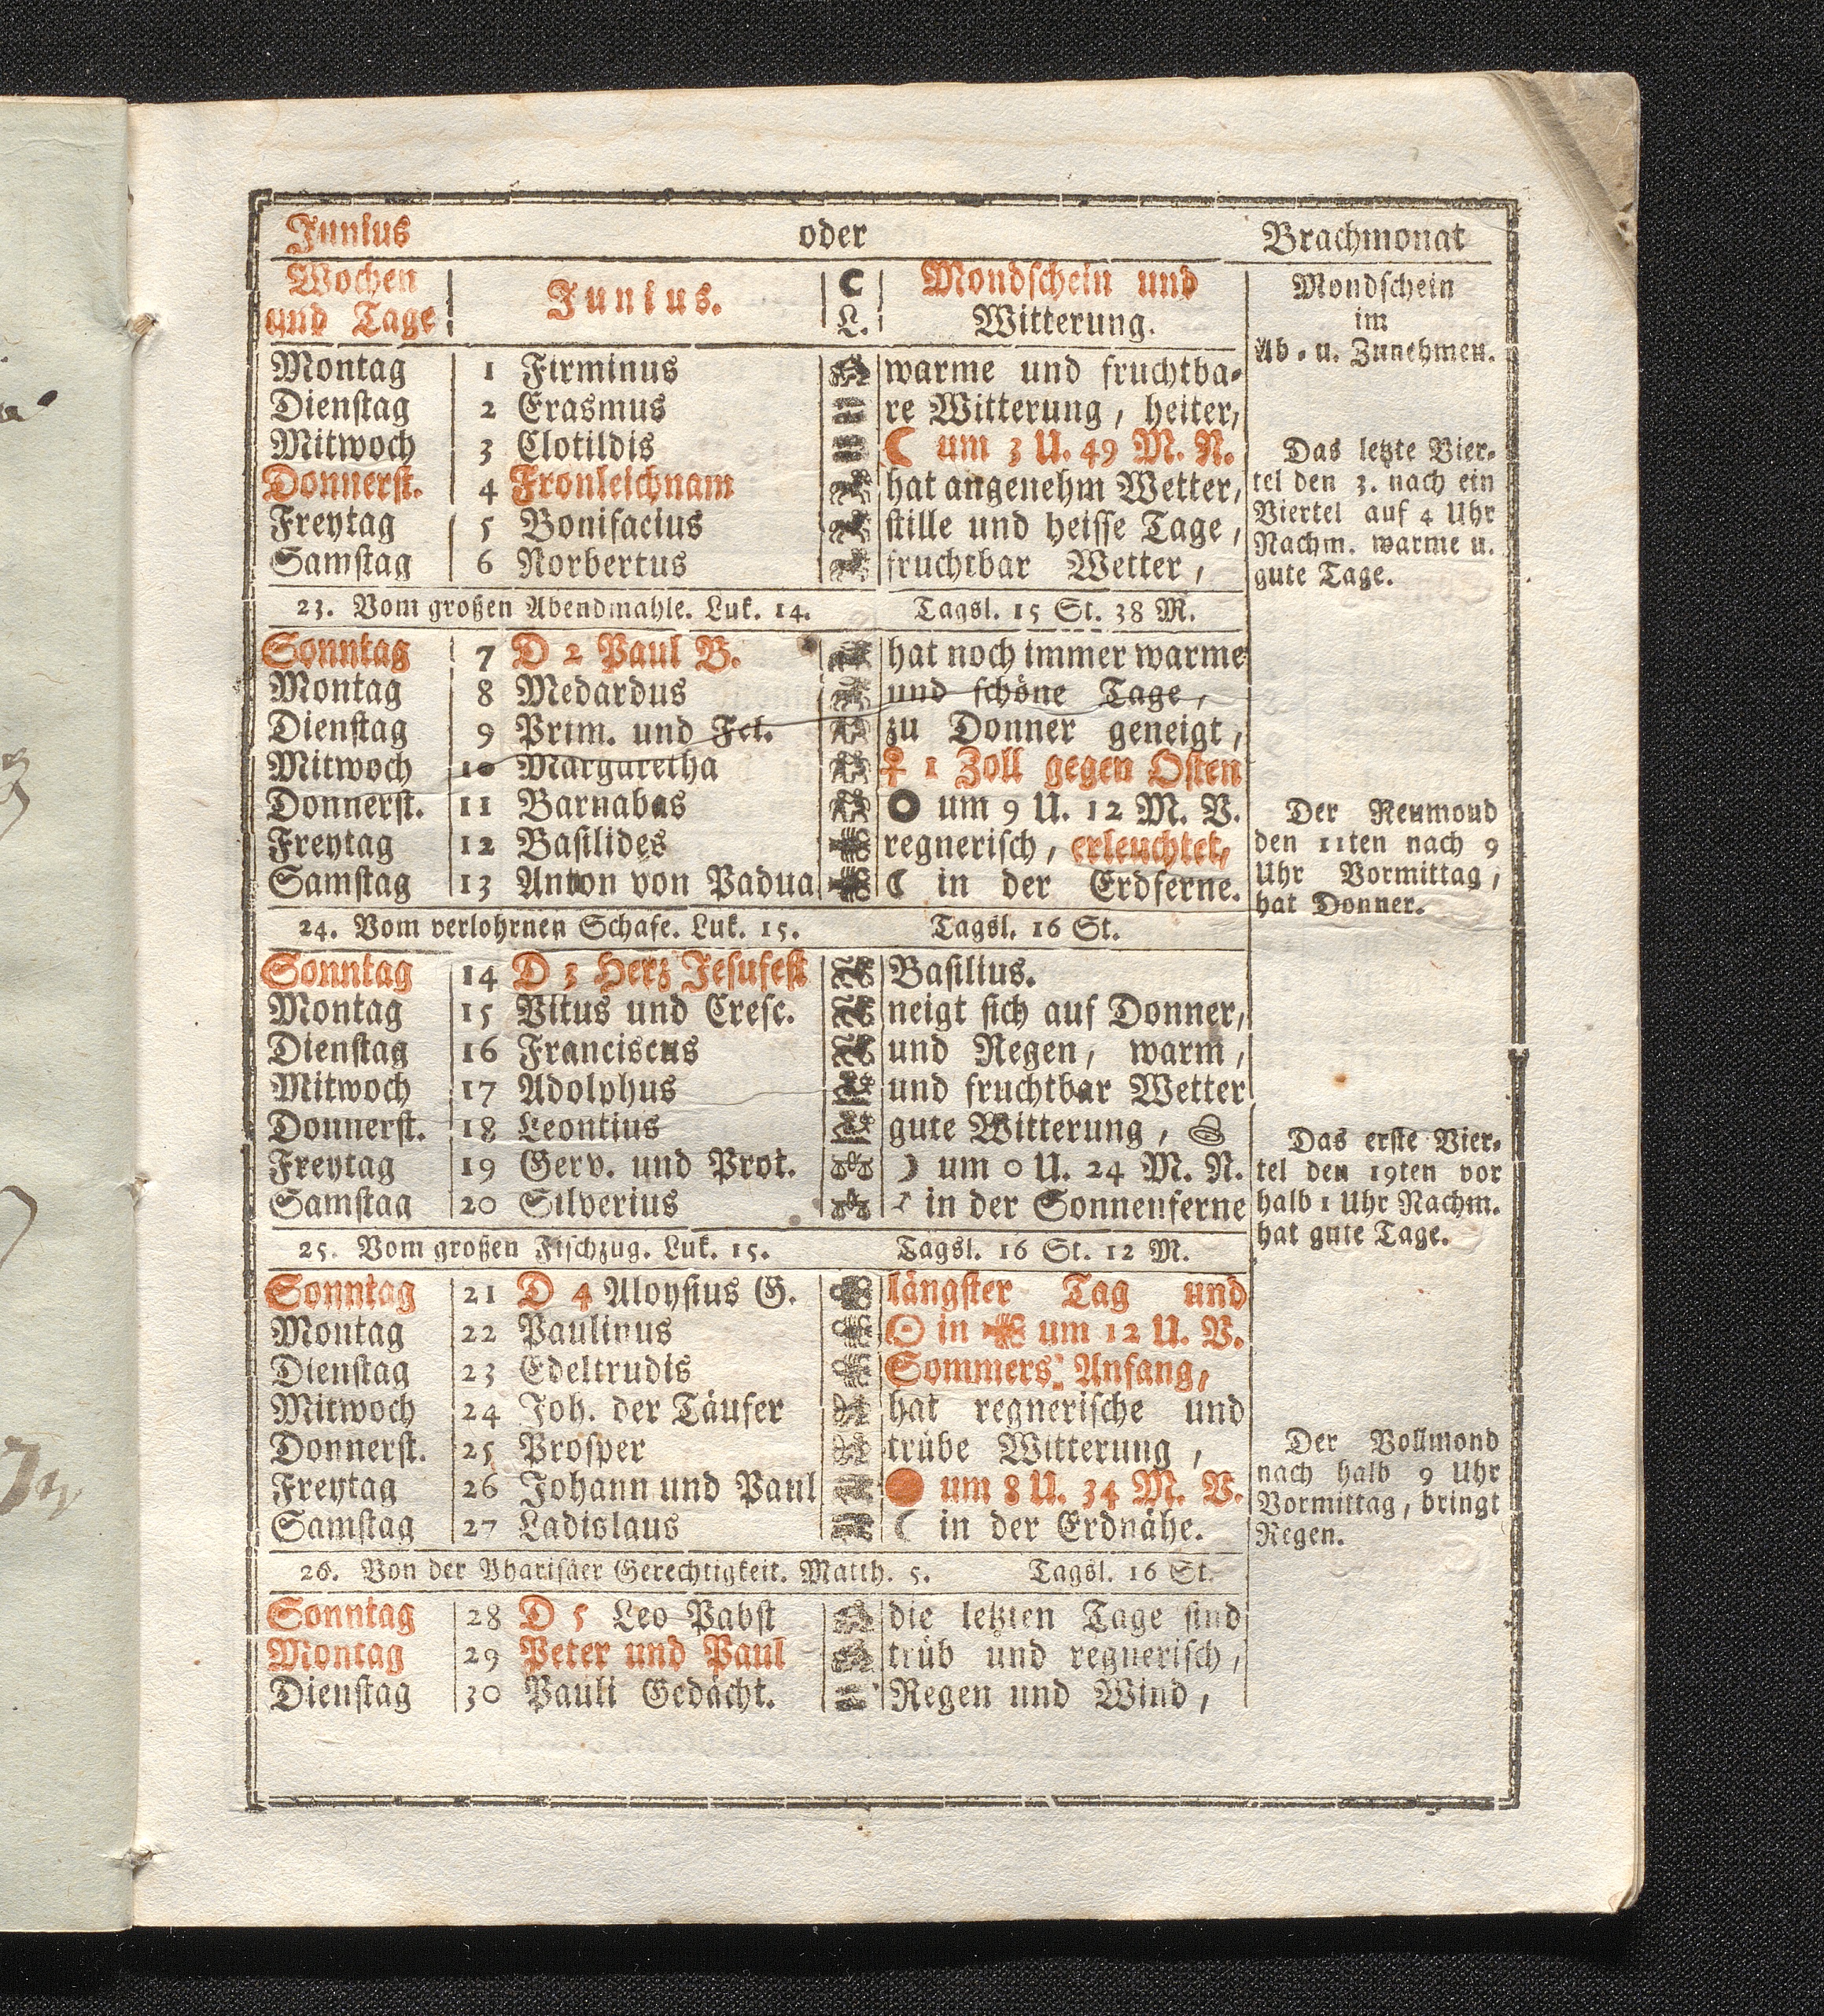 Junius oder Brachmonat
Wochen und Tage Junius. ☾ L. Mondschein und Witterung.
Mondschein
im
Ab- u. Zunehmen.
Montag 1 Firminus warme und fruchtba-
Dienstag 2 Erasmus re Witterung, heiter,
Mitwoch 3 Clotildis ☾ um 3 U. 49 M. N.
Donnerst. 4 Fronleichnam hat angenehm Wetter,
Freytag 5 Bonifacius stille und heisse Tage,
Samstag 6 Norbertus fruchtbar Wetter,
Das letzte Vier-
tel den 3. nach ein
Viertel auf 4 Uhr
Nachm. warme u.
gute Tage.
23. Vom großen Abendmahle. Luk. 14. Tagsl. 15 St. 38 M.
Sonntag 7 D 2 Paul B. hat noch immer warme
Montag 8 Medardus und schöne Tage,
Dienstag 9 Prim. und Fel. zu Donner geneigt,
Mitwoch 10 Margaretha ♀ 1 Zoll gegen Osten
Donnerst. 11 Barnabas um 9 U. 12 M. V.
Freytag 12 Basilides regnerisch, erleuchtet,
Samstag 13 Anton von Padua ☾ in der Erdferne.
Der Neumond
den 11ten nach 9
Uhr Vormittag,
hat Donner.
24. Vom verlohrnen Schafe. Luk. 15. Tagsl. 16 St.
Sonntag 14 D 3 Herz Jesufest Basilius.
Montag 15 Vitus und Cresc. neigt sich auf Donner,
Dienstag 16 Franciscus und Regen, warm,
Mitwoch 17 Adolphus und fruchtbar Wetter
Donnerst. 18 Leontius gute Witterung,
Freytag 19 Gerv. und Prot. ☽ um 0 U. 24 M. N.
Samstag 20 Silverius in der Sonnenferne
Das erste Vier-
tel den 19ten vor
halb 1 Uhr Nachm.
hat gute Tage.
25. Vom großen Fischzug. Luk. 15. Tagsl. 16 St. 12 M.
Sonntag 21 D 4 Aloysius G. längster Tag und
Montag 22 Paulinus ☉ in ♋ um 12 U. V.
Dienstag 23 Edeltrudis Sommers Anfang,
Mitwoch 24 Joh. der Täufer hat regnerische und
Donnerst. 25 Prosper trübe Witterung,
Freytag 26 Johann und Paul um 8 U. 34 M. V.
Samstag 27 Ladislaus ☾ in der Erdnähe.
Der Vollmond
nach halb 9 Uhr
Vormittag, bringt
Regen.
26. Von der Pharisäer Gerechtigkeit. Matth. 5. Tagsl. 16 St.
Sonntag 28 D 5 Leo Pabst die letzten Tage sind
Montag 29 Peter und Paul trüb und regnerisch,
Dienstag 30 Pauli Gedächt. Regen und Wind,